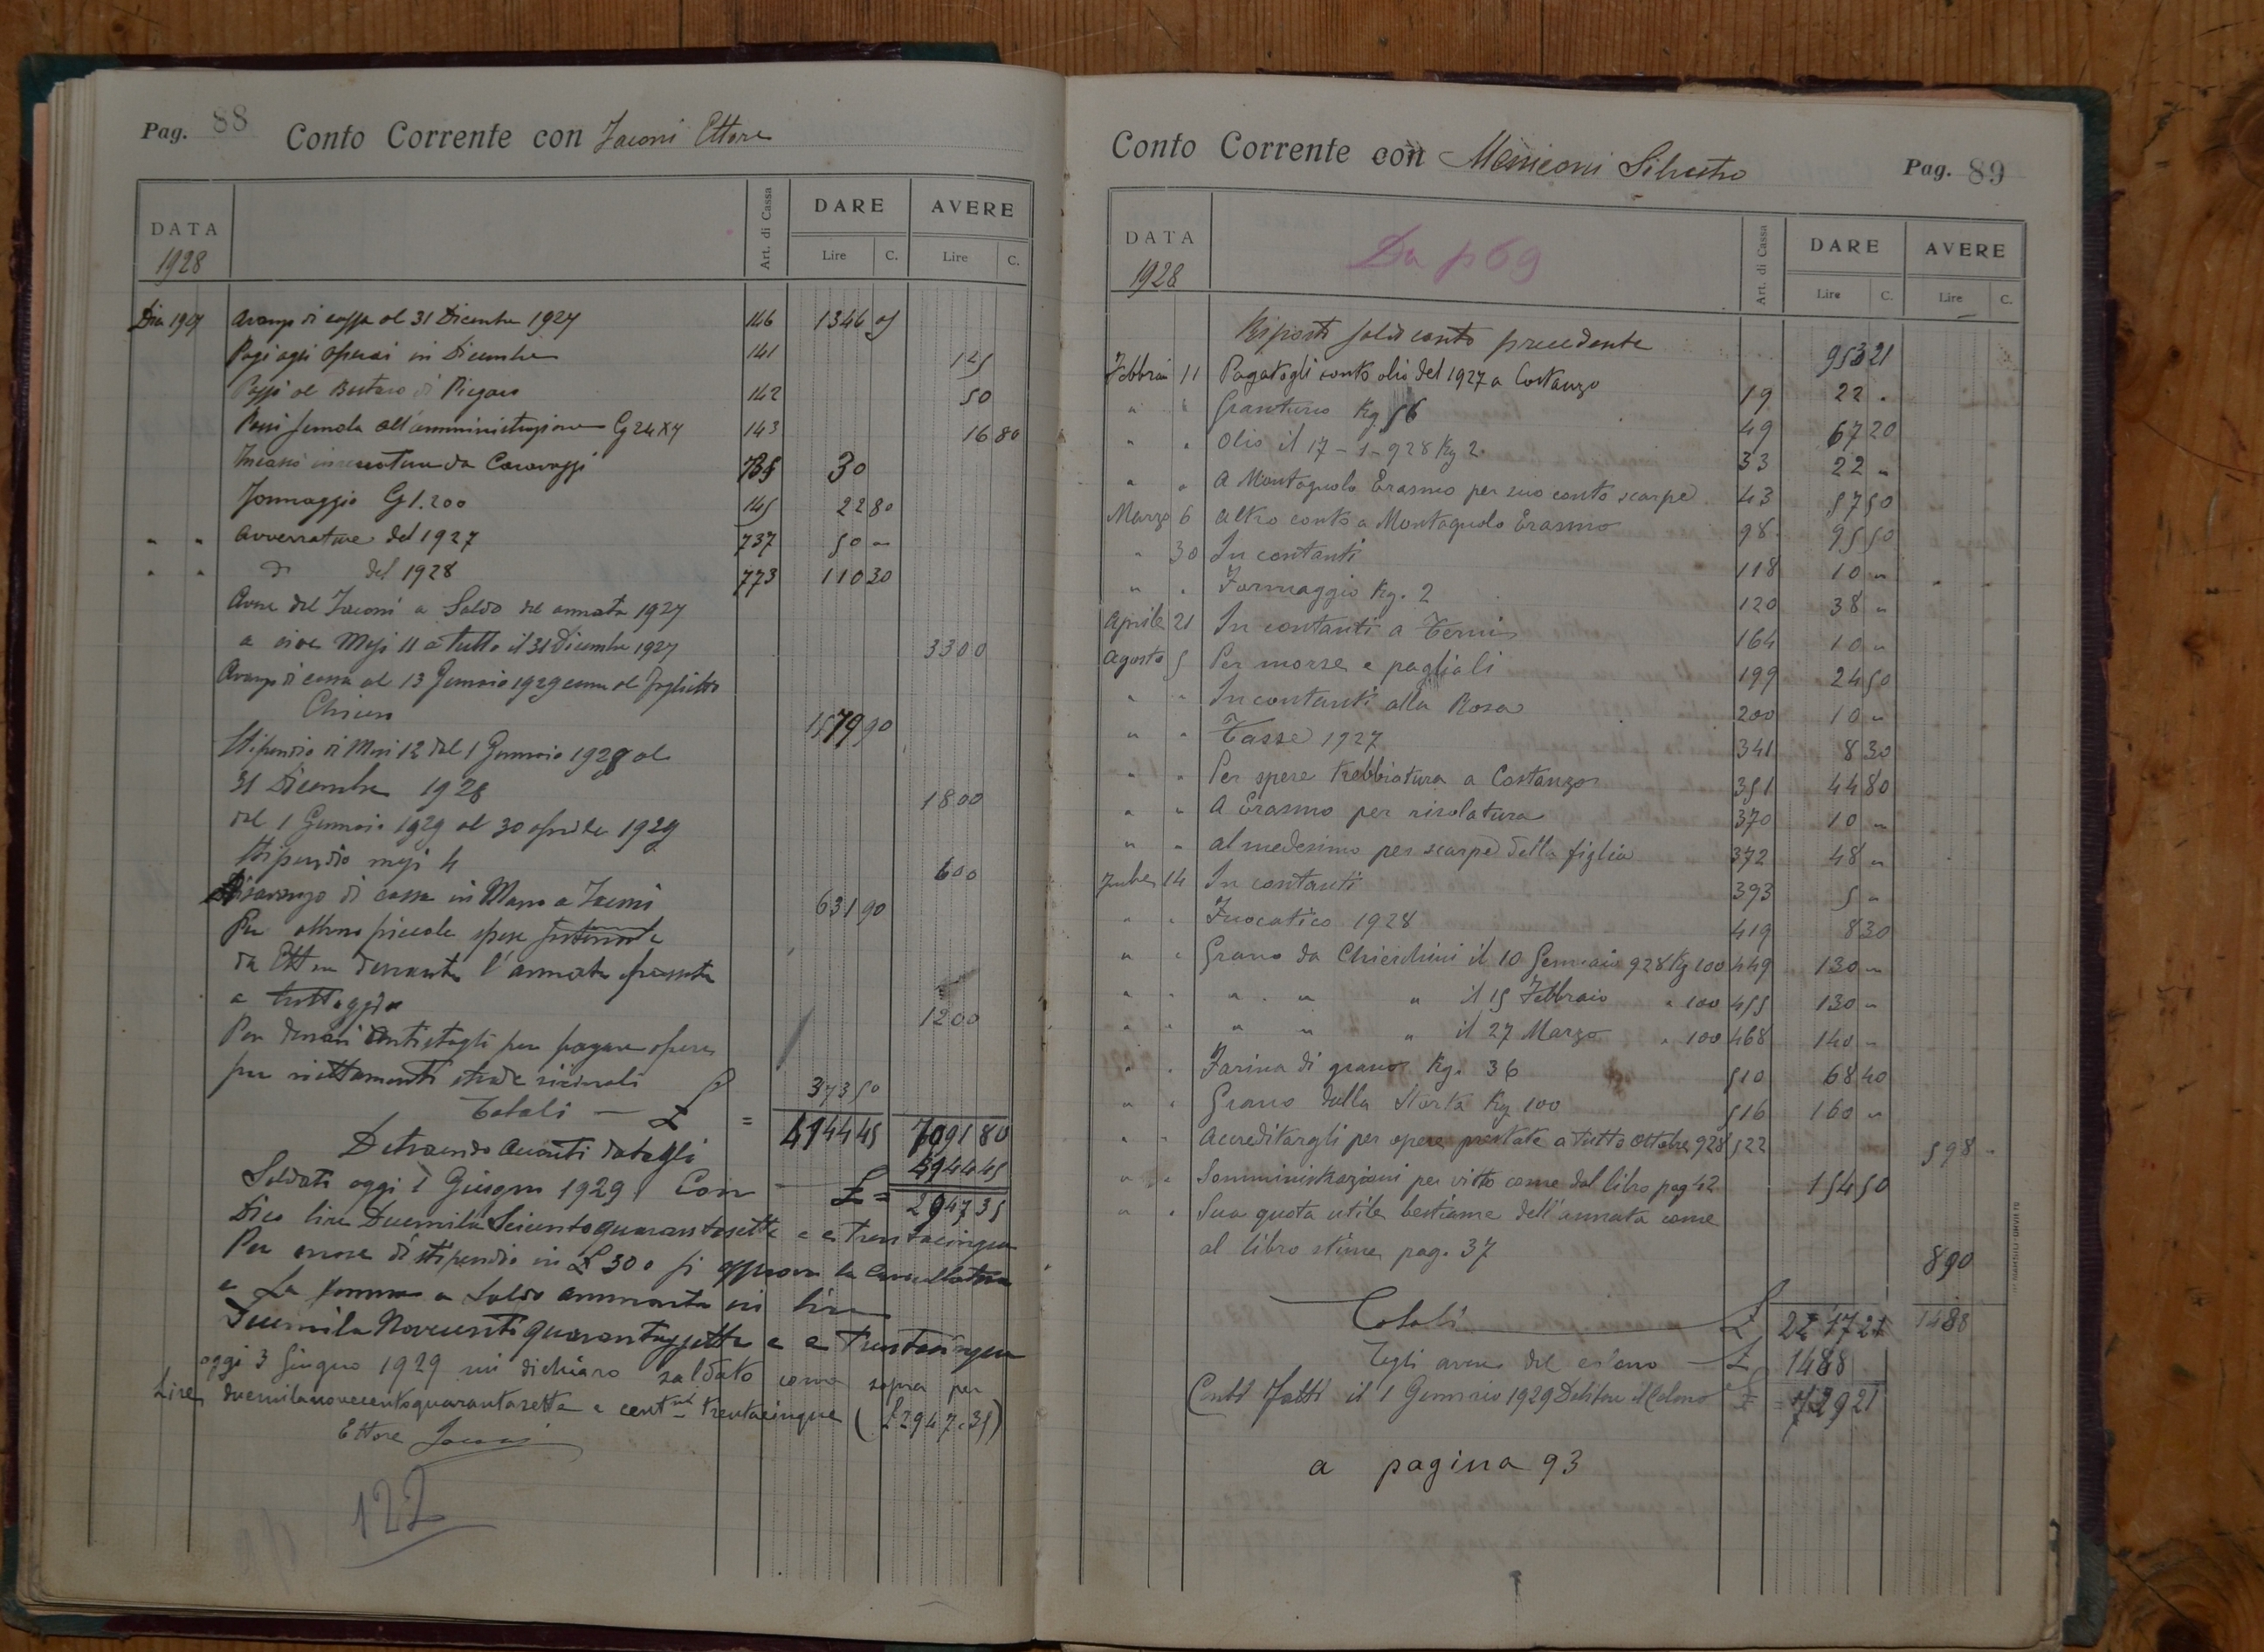 Pag. 88 Conto Corrente con Jaconi Ettore
DATA Art. di Cassa DARE AVERE
1928 Lire C. Lire C.
Avanzo di cassa al 31 Dicembre 1927 146 1346 05
Pagi agli operai in Dicembre 141 125
al di Piegaro 142 50
semola all'amministrazione 143 16 80
da Caravaggi 30
Formaggio Cg 1.200 145 22 80
" " Avverrature del 1927 737 50 "
" " d° del 1928 773 110 30
Avere del Jaconi a Saldo del annata 1927
a Mesi 11 a tutto il 31 Dicembre 1927 3300
Avanzo di cassa al 13 Gennaio 1929 come al foglietto
1579 90
Stipendio di Mesi 12 dal 1 Gennaio 1928 al
31 Dicembre 1928 1800
dal 1 Gennaio 1929 al 30 aprile 1929
Stipendio mesi 4 600
Disavanzo di cassa in Mano a Jaconi 631 90
Per piccole spese
da Ettore durante l'annata passata
a tutt'oggi 1200
Per denari per pagare opere
per riattamenti strade vicinali 373 50
Totali — £ = 4144 45 7091 80
Detraendo Avuti datogli 4144 45
Saldati oggi 1 Giugno 1929 Con £ = 2947 35
Dico lire Duemila Seicentoquarantasette e c Trentacinque
Per errore di stipendio in £ 300 si approva la Cancellatura
e La somma a Saldo ammonta in lire
Duemila Novecentoquarantasette e c Trentacinque
oggi 3 Giugno 1929 mi dichiaro saldato come sopra per
Lire duemilanovecentoquarantasette e centmi trentacinque (£ 2947.35)
Ettore Jaconi
122
Conto Corrente con Meniconi Silvestro Pag. 89
DATA Art. di Cassa DARE AVERE
1928 Da p 69 Lire C. Lire C.
Riporti saldo conto precedente 953 21
Febbraio 11 Pagatogli conto olio del 1927 a Costanzo 19 22 "
" " Granturco Kg 56 49 67 20
" " Olio il 17-1-928 Kg 2 33 22 "
" " A Montagnolo Erasmo per suo conto scarpe 43 57 50
Marzo 6 Altro conto a Montagnolo Erasmo 98 95 50
" 30 In contanti 118 10 "
" " Formaggio Kg. 2 120 38 "
Aprile 21 In contanti a Terni 164 10 "
Agosto 5 Per morse e pagliali 199 24 50
" " In contanti alla Rosa 200 10 "
" " Tasse 1927 341 8 30
" " Per opere trebbiatura a Costanzo 351 44 80
" " A Erasmo per risolatura 370 10 "
" " al medesimo per scarpe della figlia 372 48 "
14 In contanti 393 5 "
" " Fuocatico 1928 419 8 30
" " Grano da Chierchini il 10 Gennaio 928 Kg 100 449 130 "
" " " " " il 15 Febbraio " 100 455 130 "
" " " " " il 27 Marzo " 100 468 140 "
" " Farina di grano Kg. 36 510 68 40
" " Grano della Storta Kg 100 516 160 "
" " Accreditargli per opere prestate a tutto Ottobre 928 522 598 "
" " Somministrazioni per vitto come dal libro pag 42 154 50
" " Sua quota utile bestiame dell'annata come
al libro stime pag. 37 890
Totali £ 2217 21 1488
Togli avere del £ 1488
Conti fatti il 1 Gennaio 1929 Debitore il Colono £ = 729 21
a pagina 93